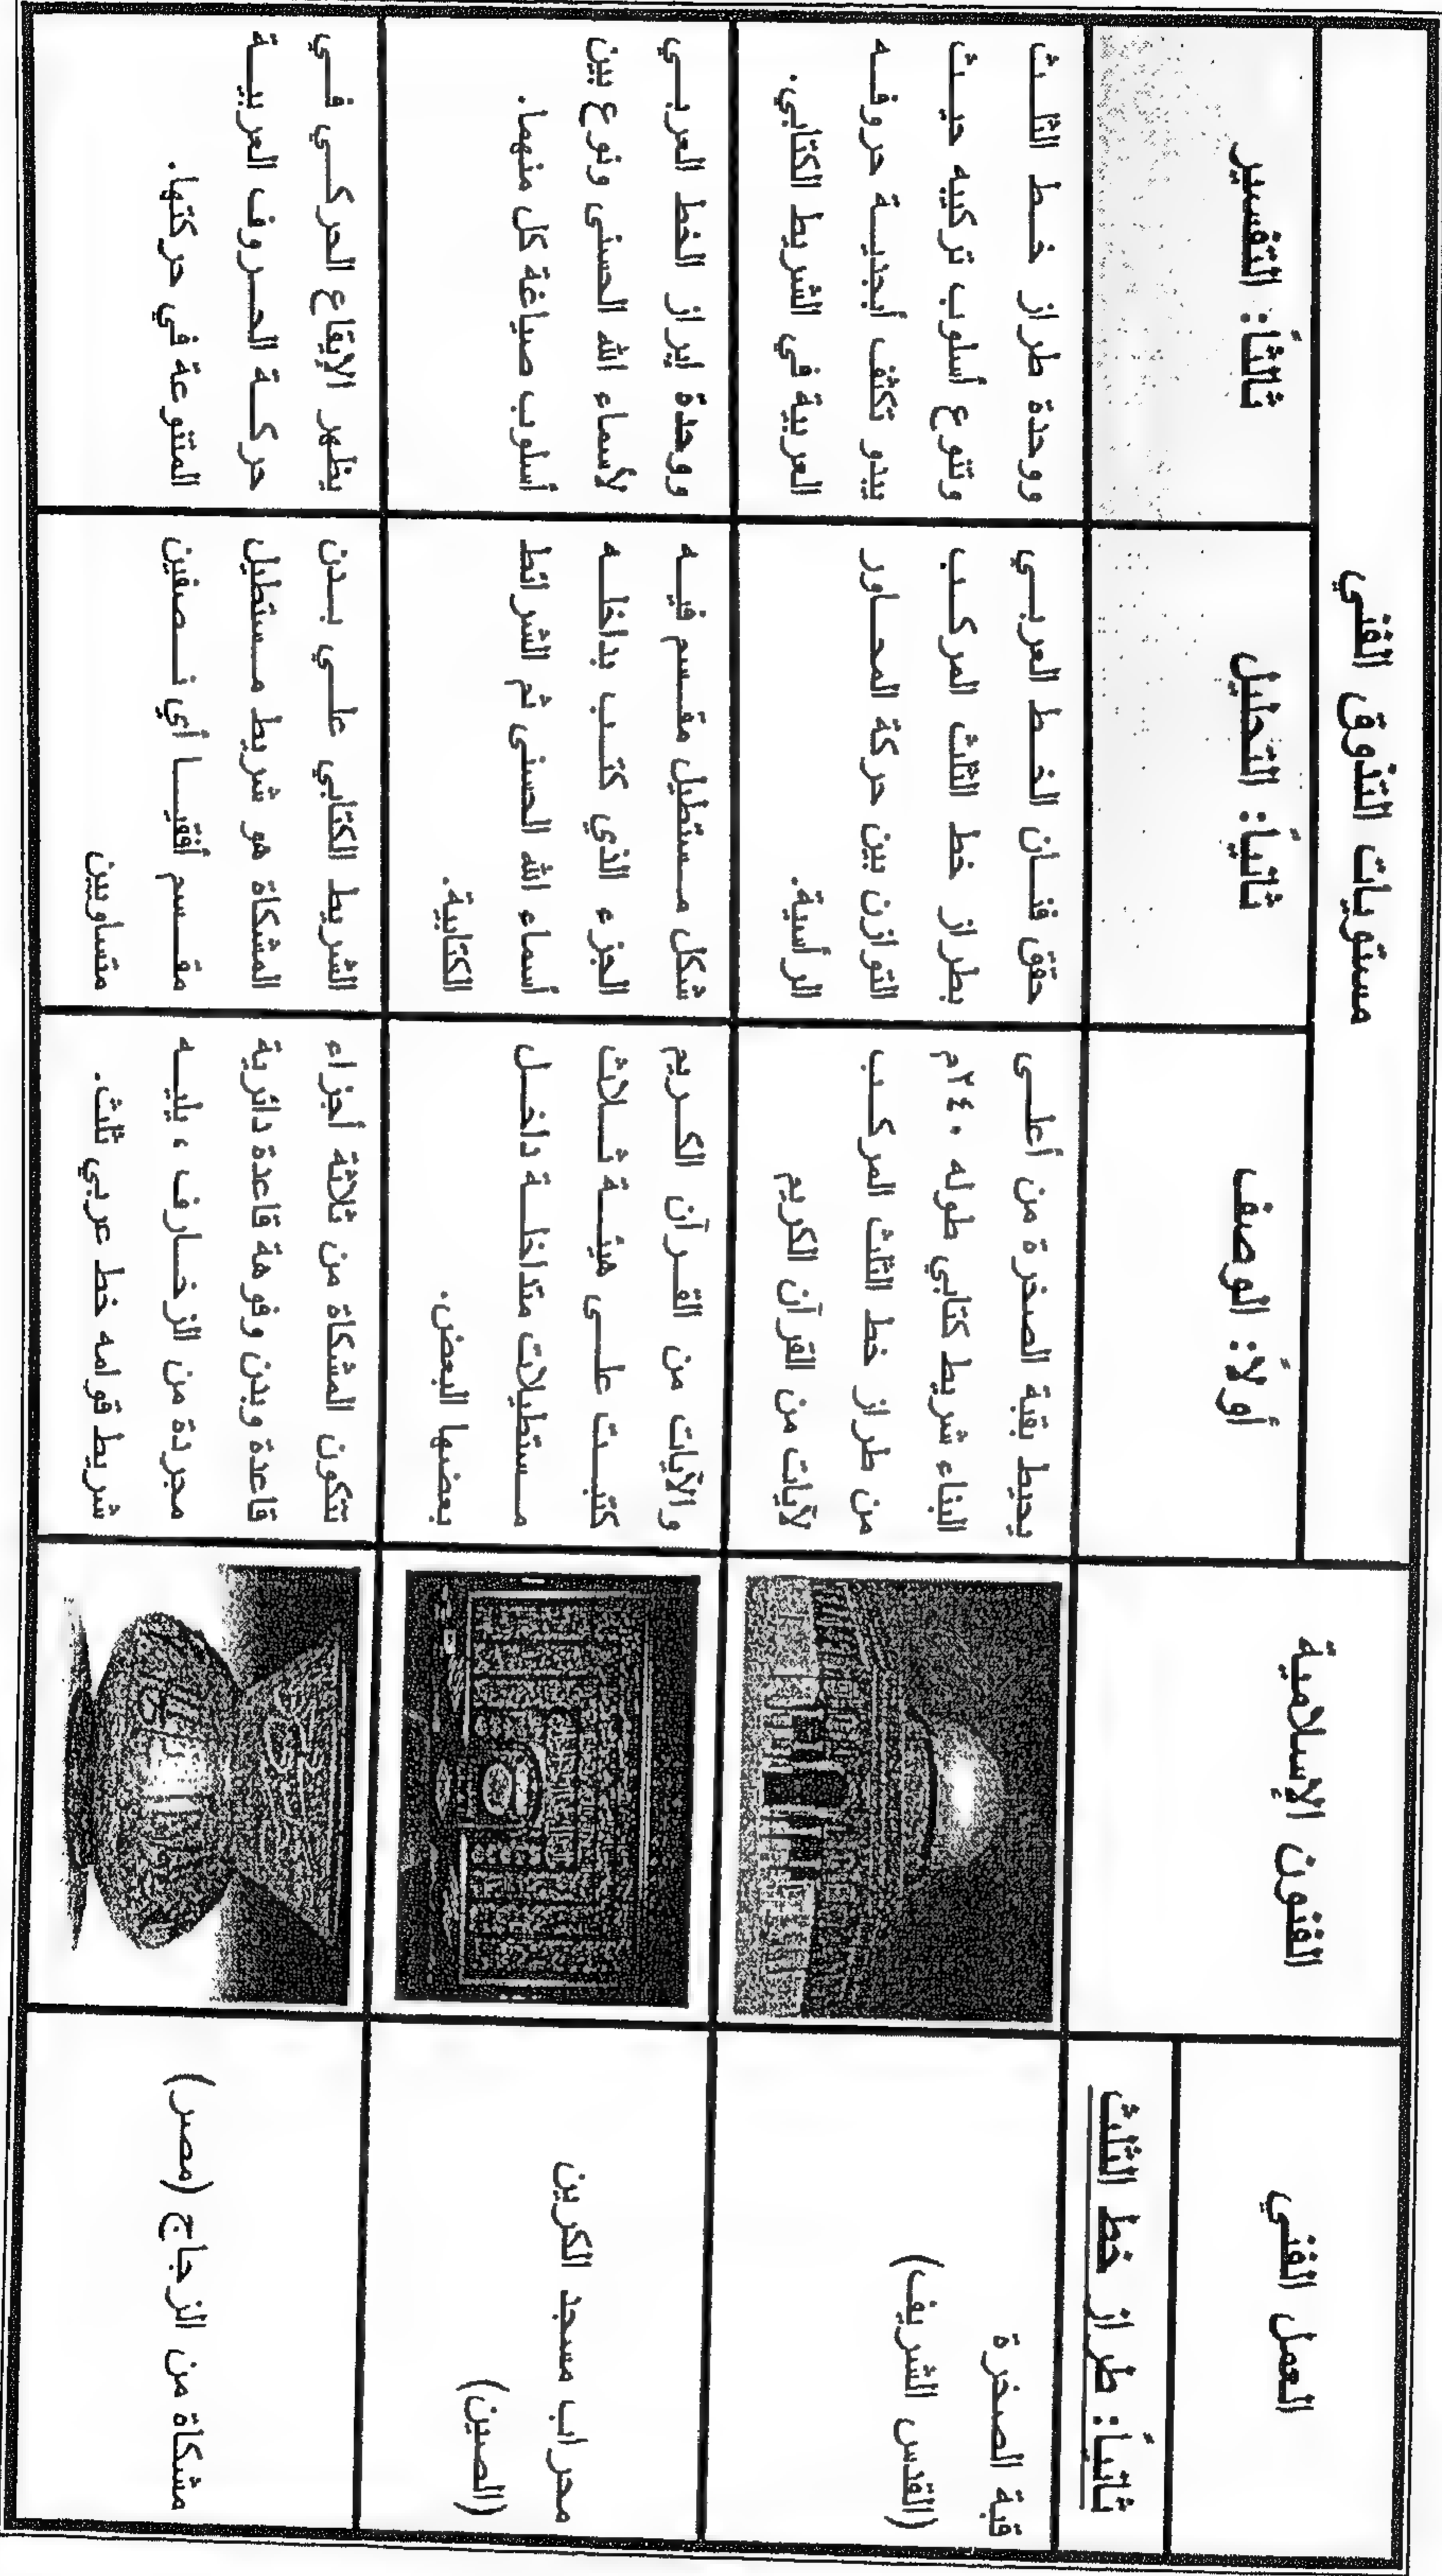 العمل الفني
الفنون الإسلامية
مستويات التذوق الفني
أولاً: الوصف
ثانياً: التحليل
ثالثاً: التفسير
ثانياً: طراز خط الثلث
قبة الصخرة
(القدس الشريف)
يحيط بقبة الصخرة من أعلى
البناء شريط كتابي طوله ٢٤٠م
من طراز خط الثلث المركب
لآيات من القرآن الكريم
حقق فنان الخط العربي
بطراز خط الثلث المركب
التوازن بين حركة المحاور
الرأسية.
ووحدة طراز خط الثلث
وتنوع أسلوب تركيبه حيث
يبدو تكثف أبجدية حروفه
العربية في الشريط الكتابي.
محراب مسجد الكرين
(الصين)
والآيات من القرآن الكريم
كتبت على هيئة ثلاث
مستطيلات متداخلة داخل
بعضها البعض.
شكل مستطيل مقسم فيه
الجزء الذي كتب بداخله
أسماء الله الحسنى ثم الشرائط
الكتابية.
ووحدة ابراز الخط العربي
لأسماء الله الحسنى ونوع بين
أسلوب صياغة كل منهما.
مشكاة من الزجاج (مصر)
تتكون المشكاة من ثلاثة أجزاء
قاعدة وبدن وفوهة قاعدة دائرية
مجردة من الزخارف ، يليه
شريط قوامه خط عربي ثلث.
الشريط الكتابي علي بدن
المشكاة هو شريط مستطيل
مقسم أفقيا أي نصفين
متساويين
يظهر الإيقاع الحركي في
حركة الحروف العربية
المتنوعة في حركتها.